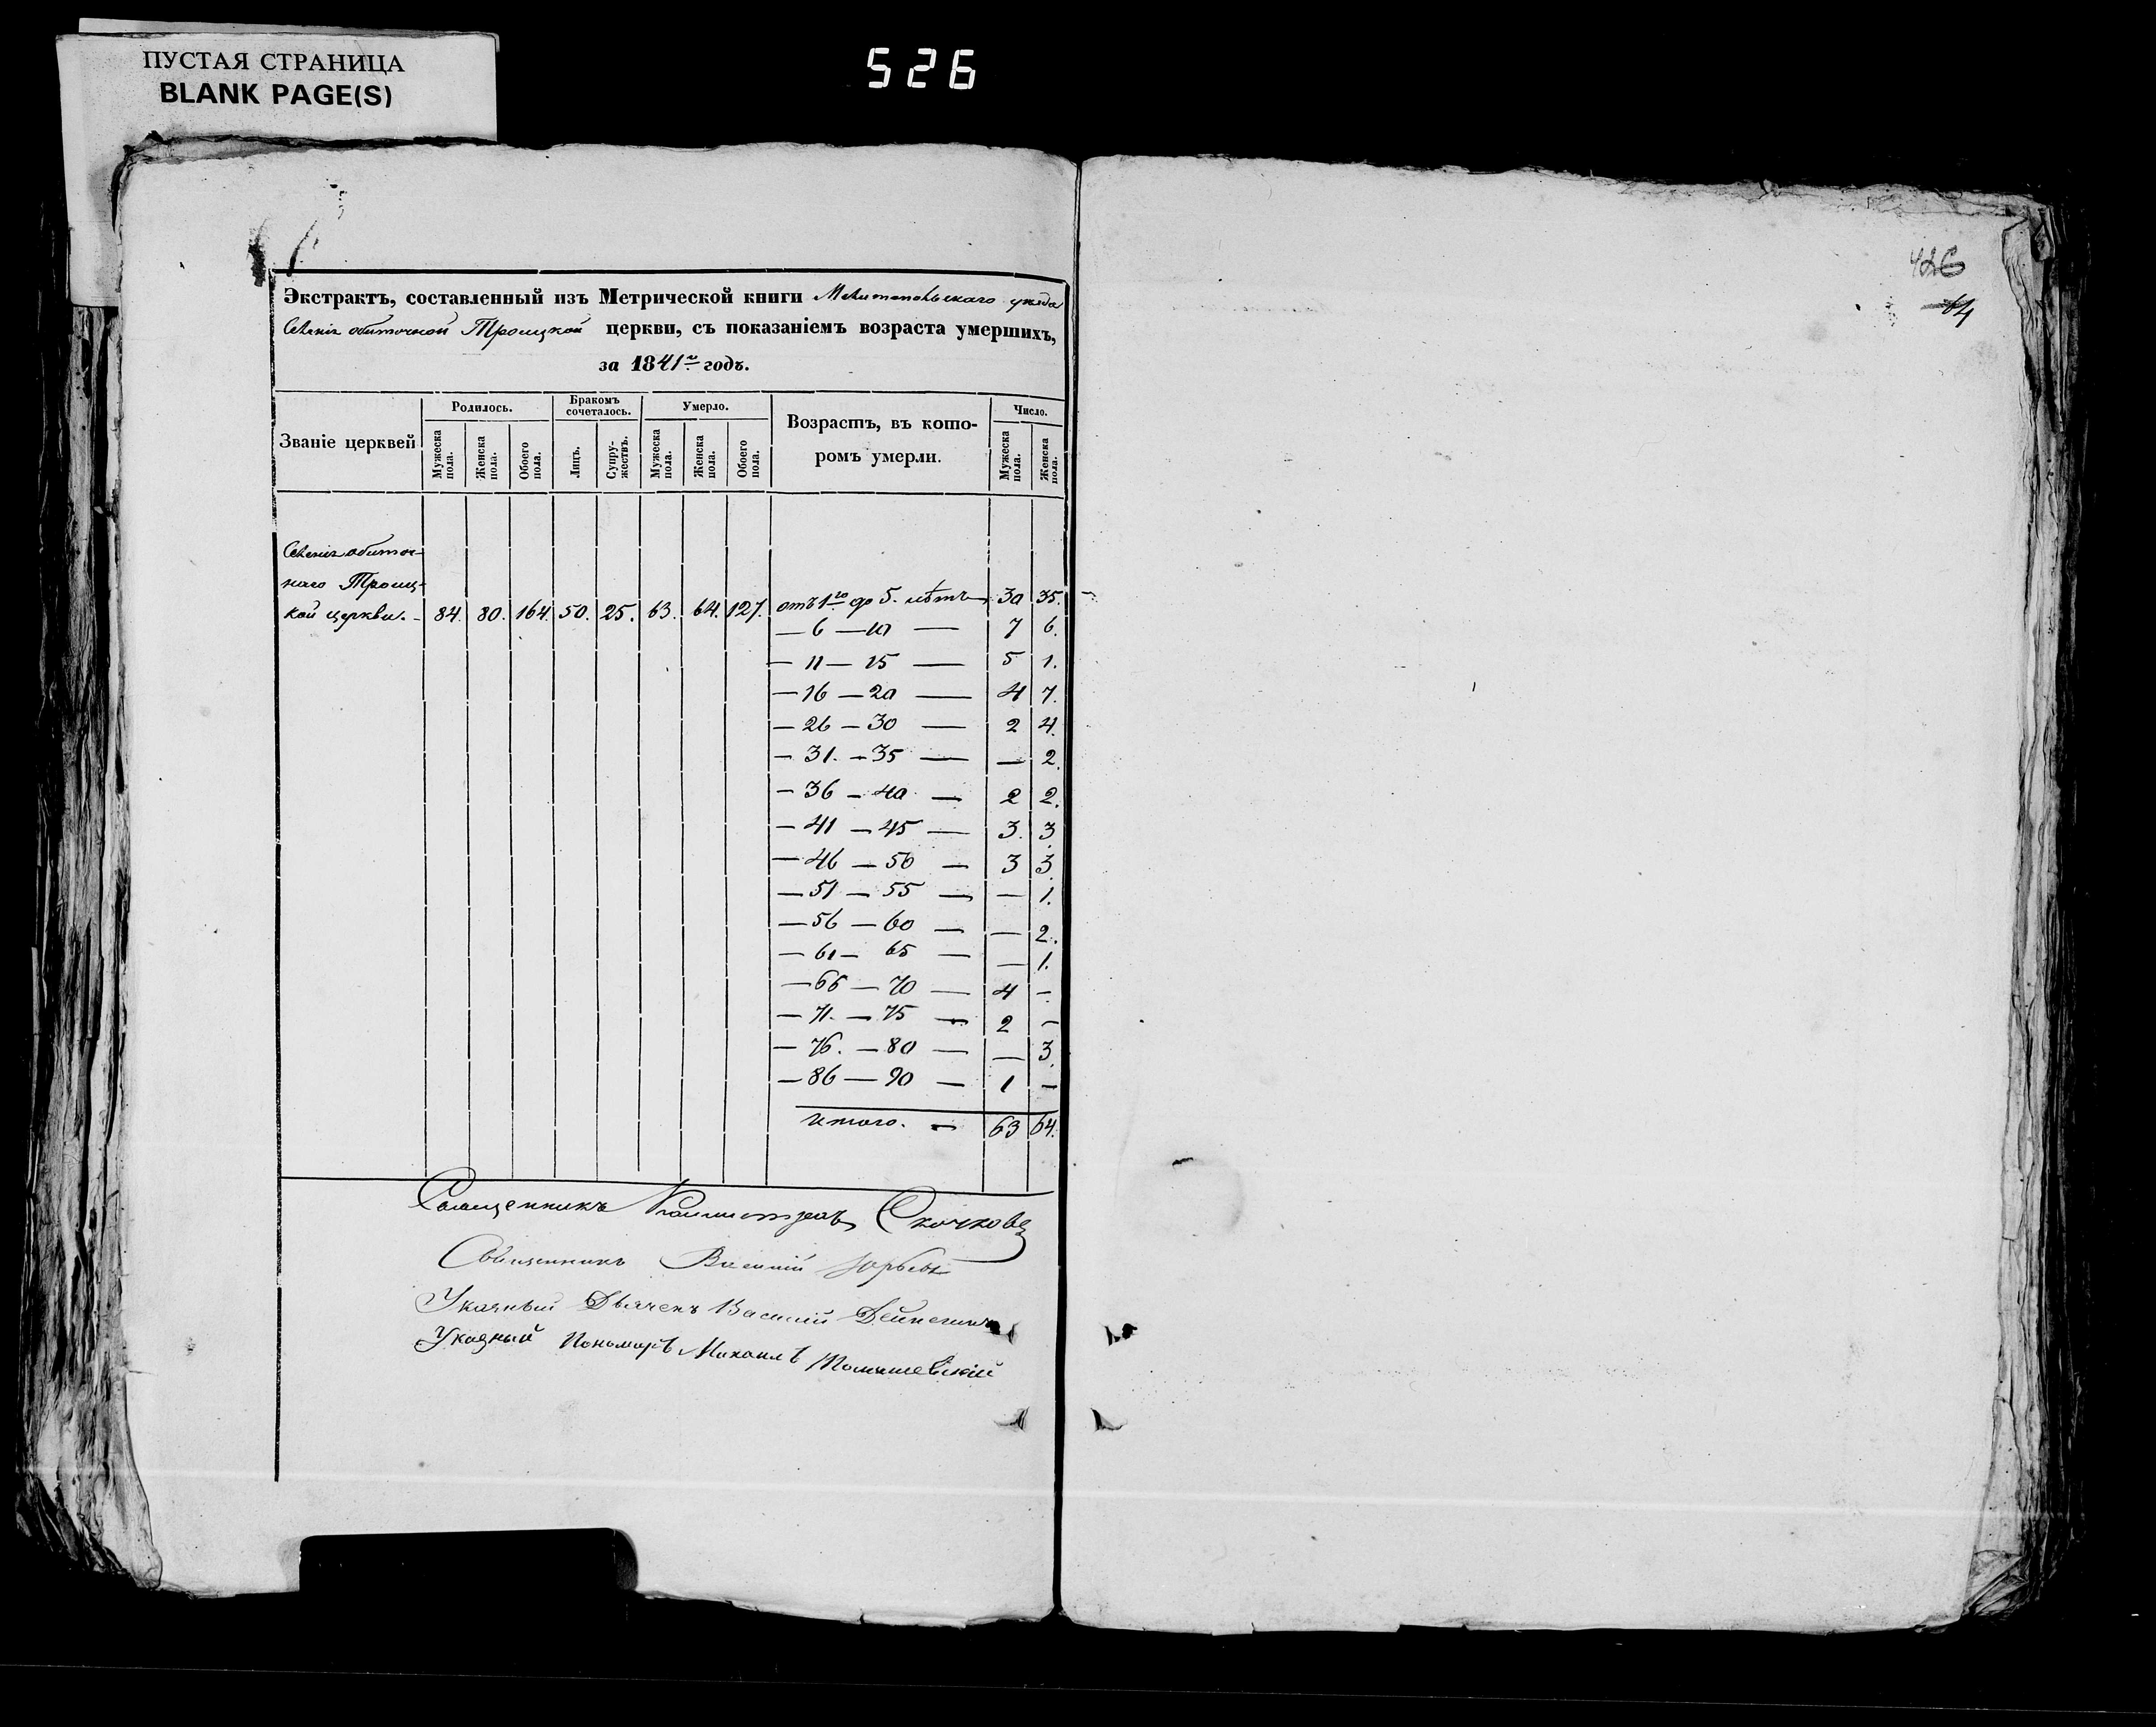 ПУСТАЯ СТРАНИЦА
BLANK PAGE(S)
526
426
64
Экстрактъ, составленный изъ Метрической книги Мелитопольскаго уѣзда
Селенія обиточной Троицкой церкви, съ показаніемъ возраста умершихъ,
за 1841го годъ.
Званіе церквей
Родилось.
Мужеска пола.
Женска пола.
Обоего пола.
Бракомъ сочеталось.
Лицъ.
Супружествъ.
Умерло.
Мужеска пола.
Женска пола.
Обоего пола.
Возрастъ, въ которомъ умерли.
Число.
Мужеска пола.
Женска пола.
Селенія обиточ-
наго Троиц-
кой церкви. - 84. 80. 164. 50. 25. 63. 64. 127. отъ 1го до 5. лѣтъ 30 35.
— 6 — 10 — 7 6.
— 11 — 15 — 5 1.
— 16 — 20 — 4 7.
— 26 — 30 — 2 4.
— 31. — 35 — — 2.
— 36 — 40 — 2 2.
— 41 — 45 — 3. 3.
— 46 — 50 — 3 3.
— 51 — 55 — — 1.
— 56 — 60 — — 2.
— 61 — 65 — — 1.
— 66 — 70 — 4 —
— 71. — 75 — 2 —
— 76. — 80 — — 3.
— 86 — 90 — 1 —
итого. — 63 64.
Священникъ Скочковъ
Священникъ Василій Юрьевъ
Указный Дьячекъ Василій Дейнекинъ
Указный Пономарь Михаилъ Томашевскій